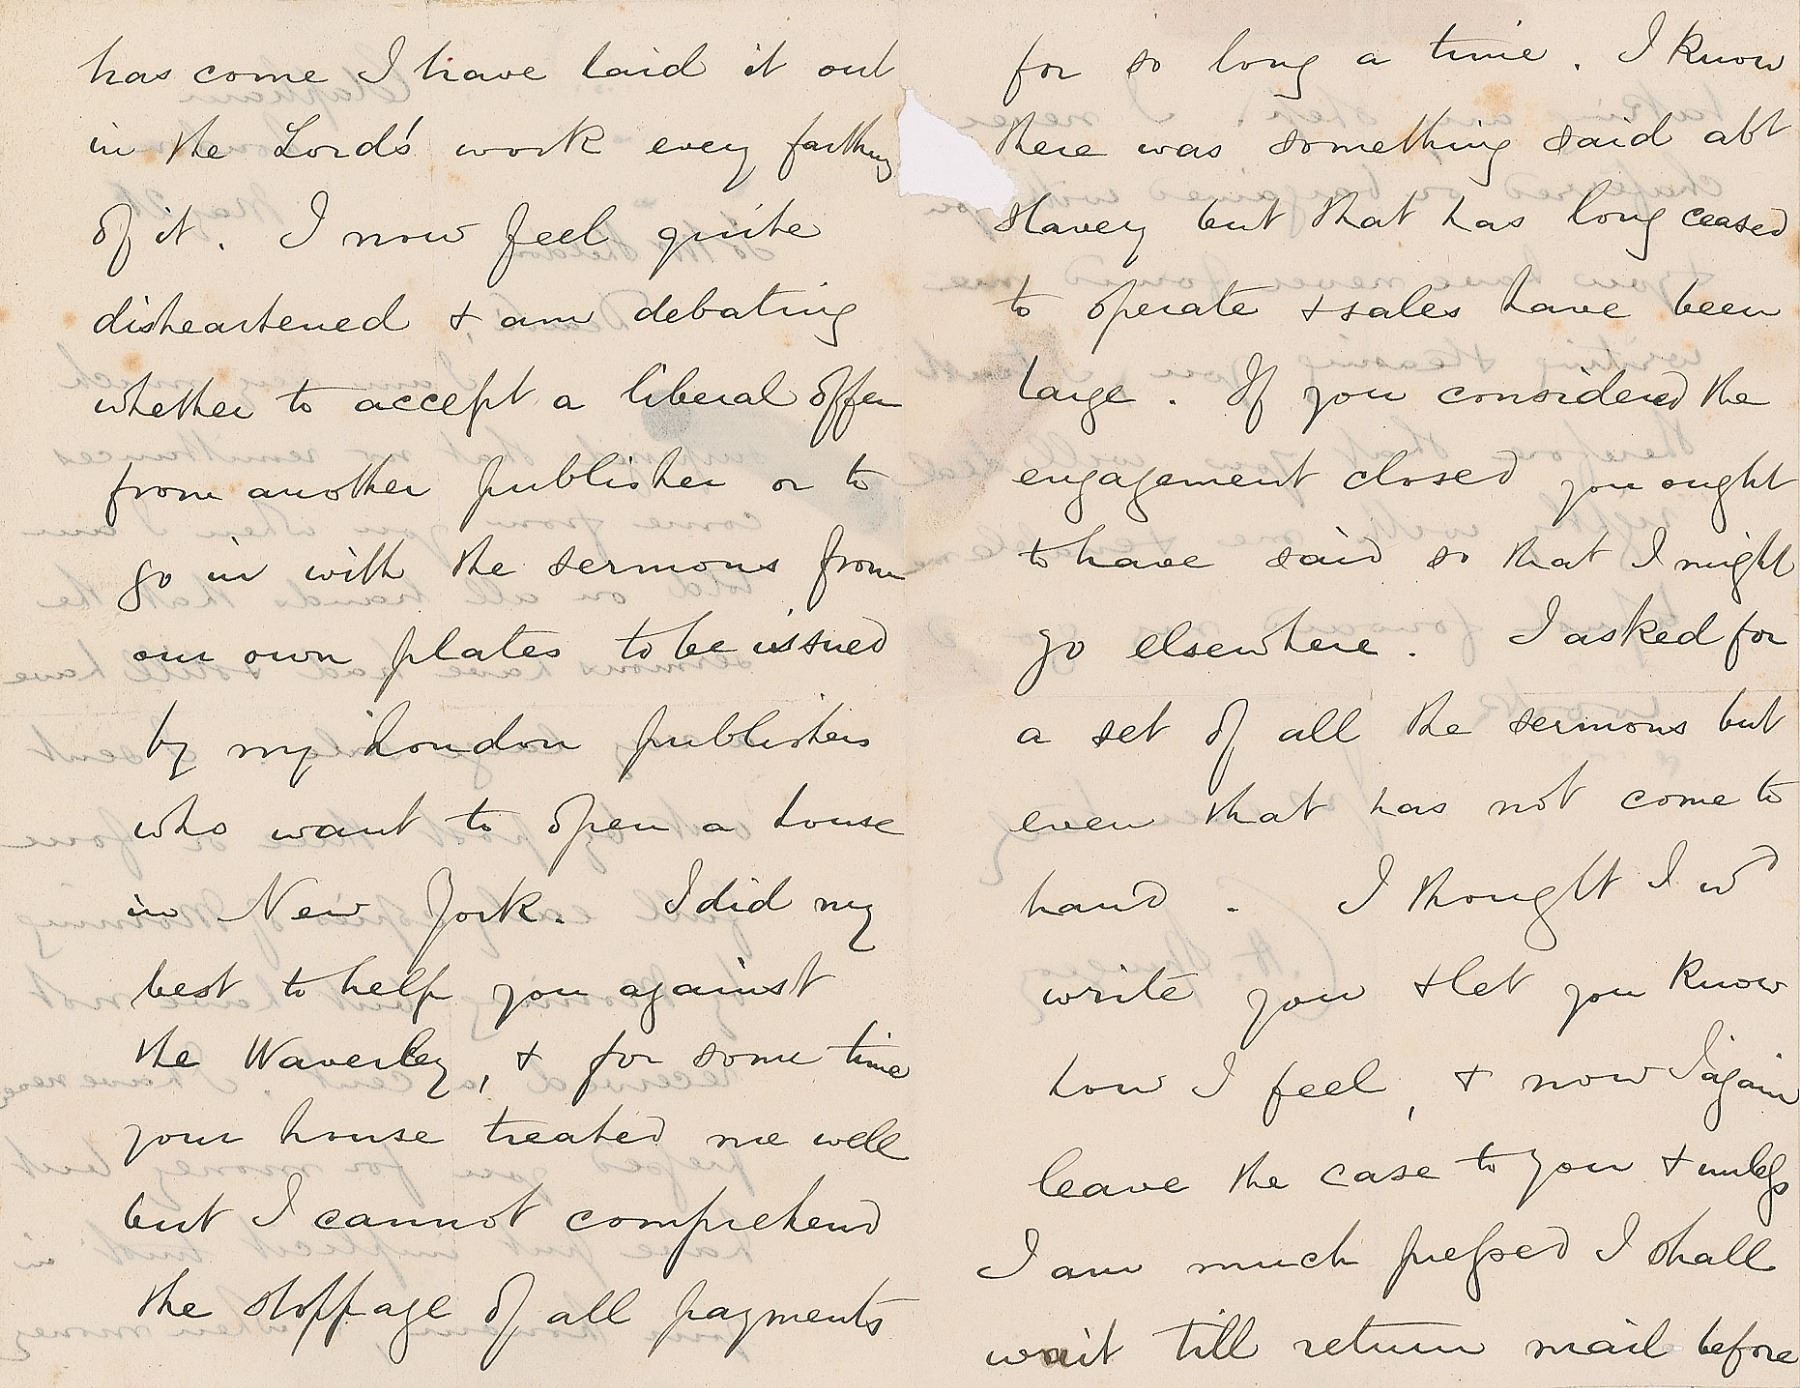 has come I have laid it out
in the Lord's work every farthing
of it. I now feel quite
disheartened & am debating
whether to accept a liberal offer
from another publisher or to
go in with the sermons from
our own plates to be issued
by my London publishers
who want to open a house
in New York. I did my
best to help you against
the Waverley, & for some time
your house treated me well
but I cannot comprehend
the stoppage of all payments
for so long a time. I know
there was something said abt
slavery but that has long ceased
to operate & sales have been
large. If you considered the
engagement closed you ought
to have said so that I might
go elsewhere. I asked for
a set of all the sermons but
even that has not come to
hand. I thought I wd
write you & let you know
how I feel, & now I again
leave the case to you & unless
I am much pressed I shall
wait till return mail before